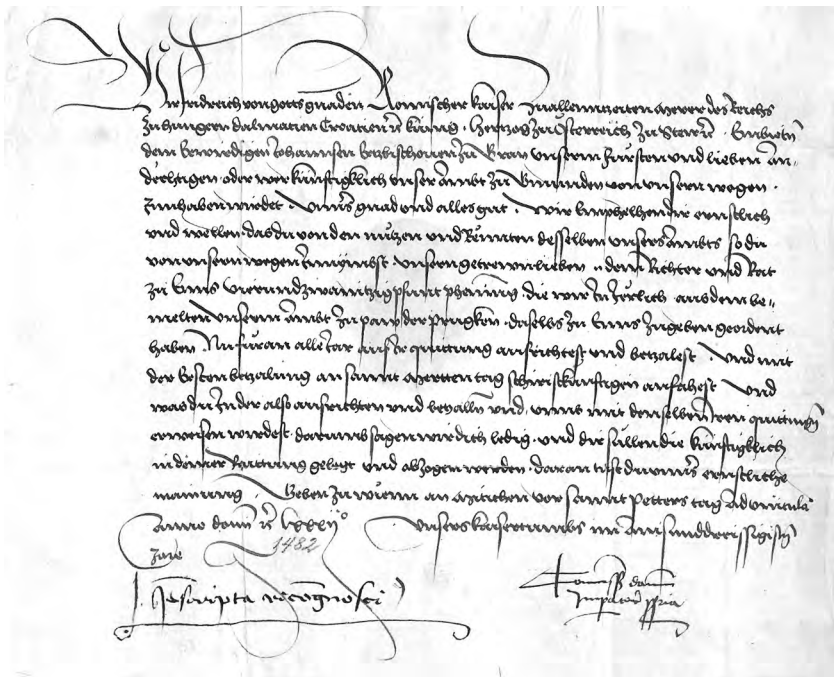 Wir Fridreich von gotts gnaden Romischer kaiser zuallenntzeiten merer des Reichs
zu Hungern Dalmatien Croatien rc kunig Hertzog zu Osterreich zu Steir rc Embieten
dem Erwirdigen Johannsen Ertzbischouen zu Gran unserm Fursten und lieben an-
dechtigen oder wer kunfftigklich unser Ambt zu Gmunden von unsern wegen
Innhaben wirdet unnser gnad und alles gut Wir Emphelhen dir ernstlich
und wellen das du von den nutzen und Rennten desselben unsers Ambts so du
von unsern wegen Innymbst unsern getrewn lieben dem Richter und Rat
zu Enns Vierundzwaintzig phunt phennig die wir In Jerlich aus dem be-
melten unserm Ambt zu paw der Prugken daselbs zu Enns zugeben geordent
haben Nu furan alle Jar auf Ir quittung ausrichtest und betzalest und mit
der Ersten betzalung an sannd Merten tag schiristkunftigen anfahest und
was du In der also ausrichten und betzallen und unns mit denselben Iren quittungen
erweisen wirdest darumb sagen wir dich ledig und dir sullen die kunfftigklich
in deiner Raittung gelegt und abgezogen werden daran tust du unnser ernstliche
mainung Geben zu Wienn an Mitichen vor sannd Petters tag ad vincula
Anno domini rc lxxxij° unsers kaisertumbs im ainsunddreissigisten
Jare 1482
p̄scripta recognosci
Commissio domini
Imperatoris propria